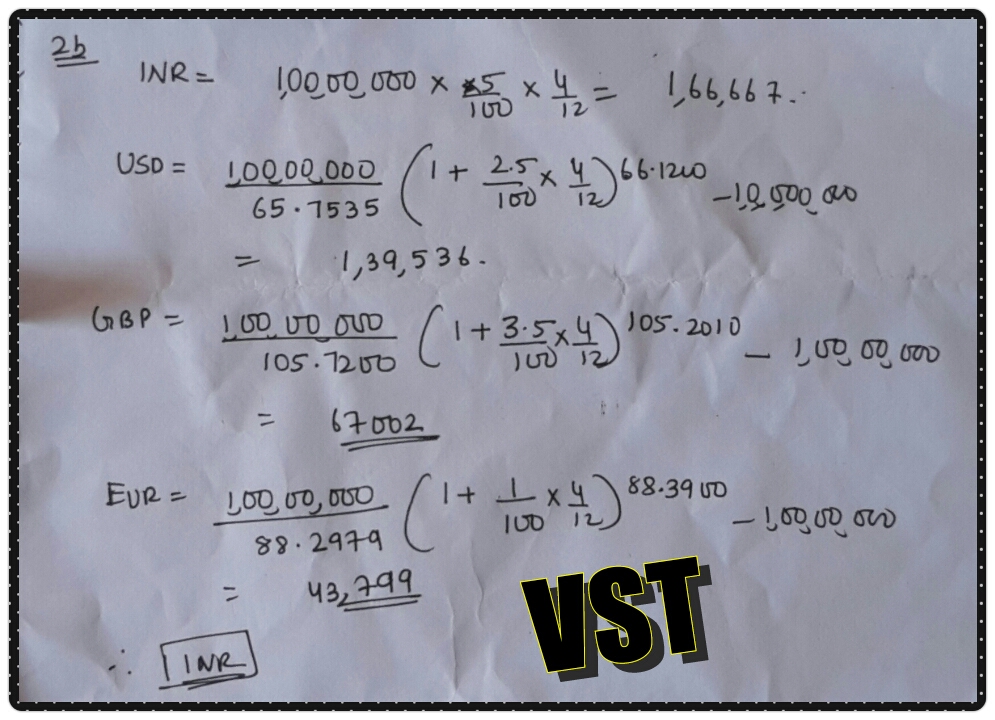 2b
INR = 1,00,00,000 × 5/100 × 4/12 = 1,66,667.
USD = 1,00,00,000/65.7535 (1 + 2.5/100 × 4/12) 66.1200 - 1,00,00,000
= 1,39,536.
GBP = 1,00,00,000/105.7200 (1 + 3.5/100 × 4/12) 105.2010 - 1,00,00,000
= 67002
EUR = 1,00,00,000/88.2979 (1 + 1/100 × 4/12) 88.3900 - 1,00,00,000
= 43,799
∴ INR
VST